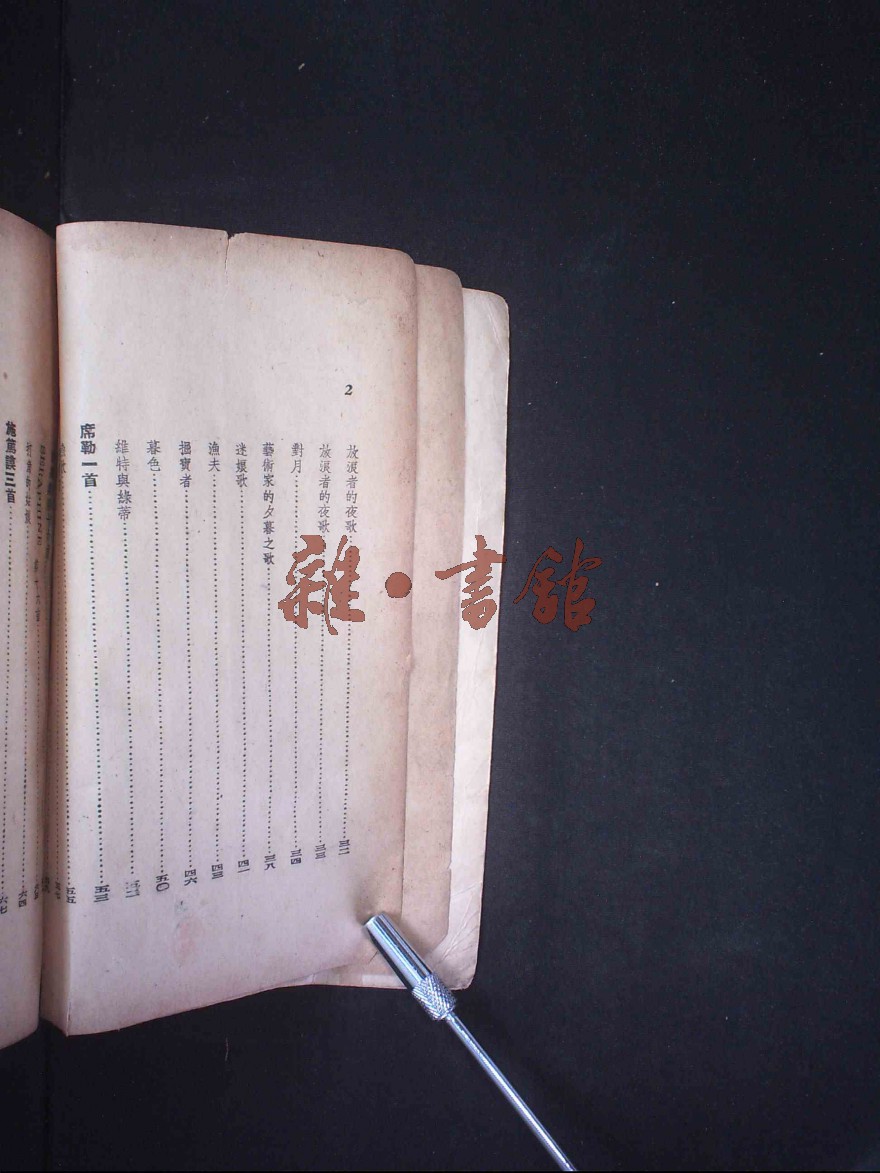 2
放浪者的夜歌 三二
放浪者的夜歌 三三
對月 三四
藝術家的夕暮之歌 三八
迷孃歌 四一
漁夫 四三
掘寶者 四六
暮色 五〇
維特與綠蒂
席勒一首 五三
五五
六四
施篤謨三首 六七
雜·書館